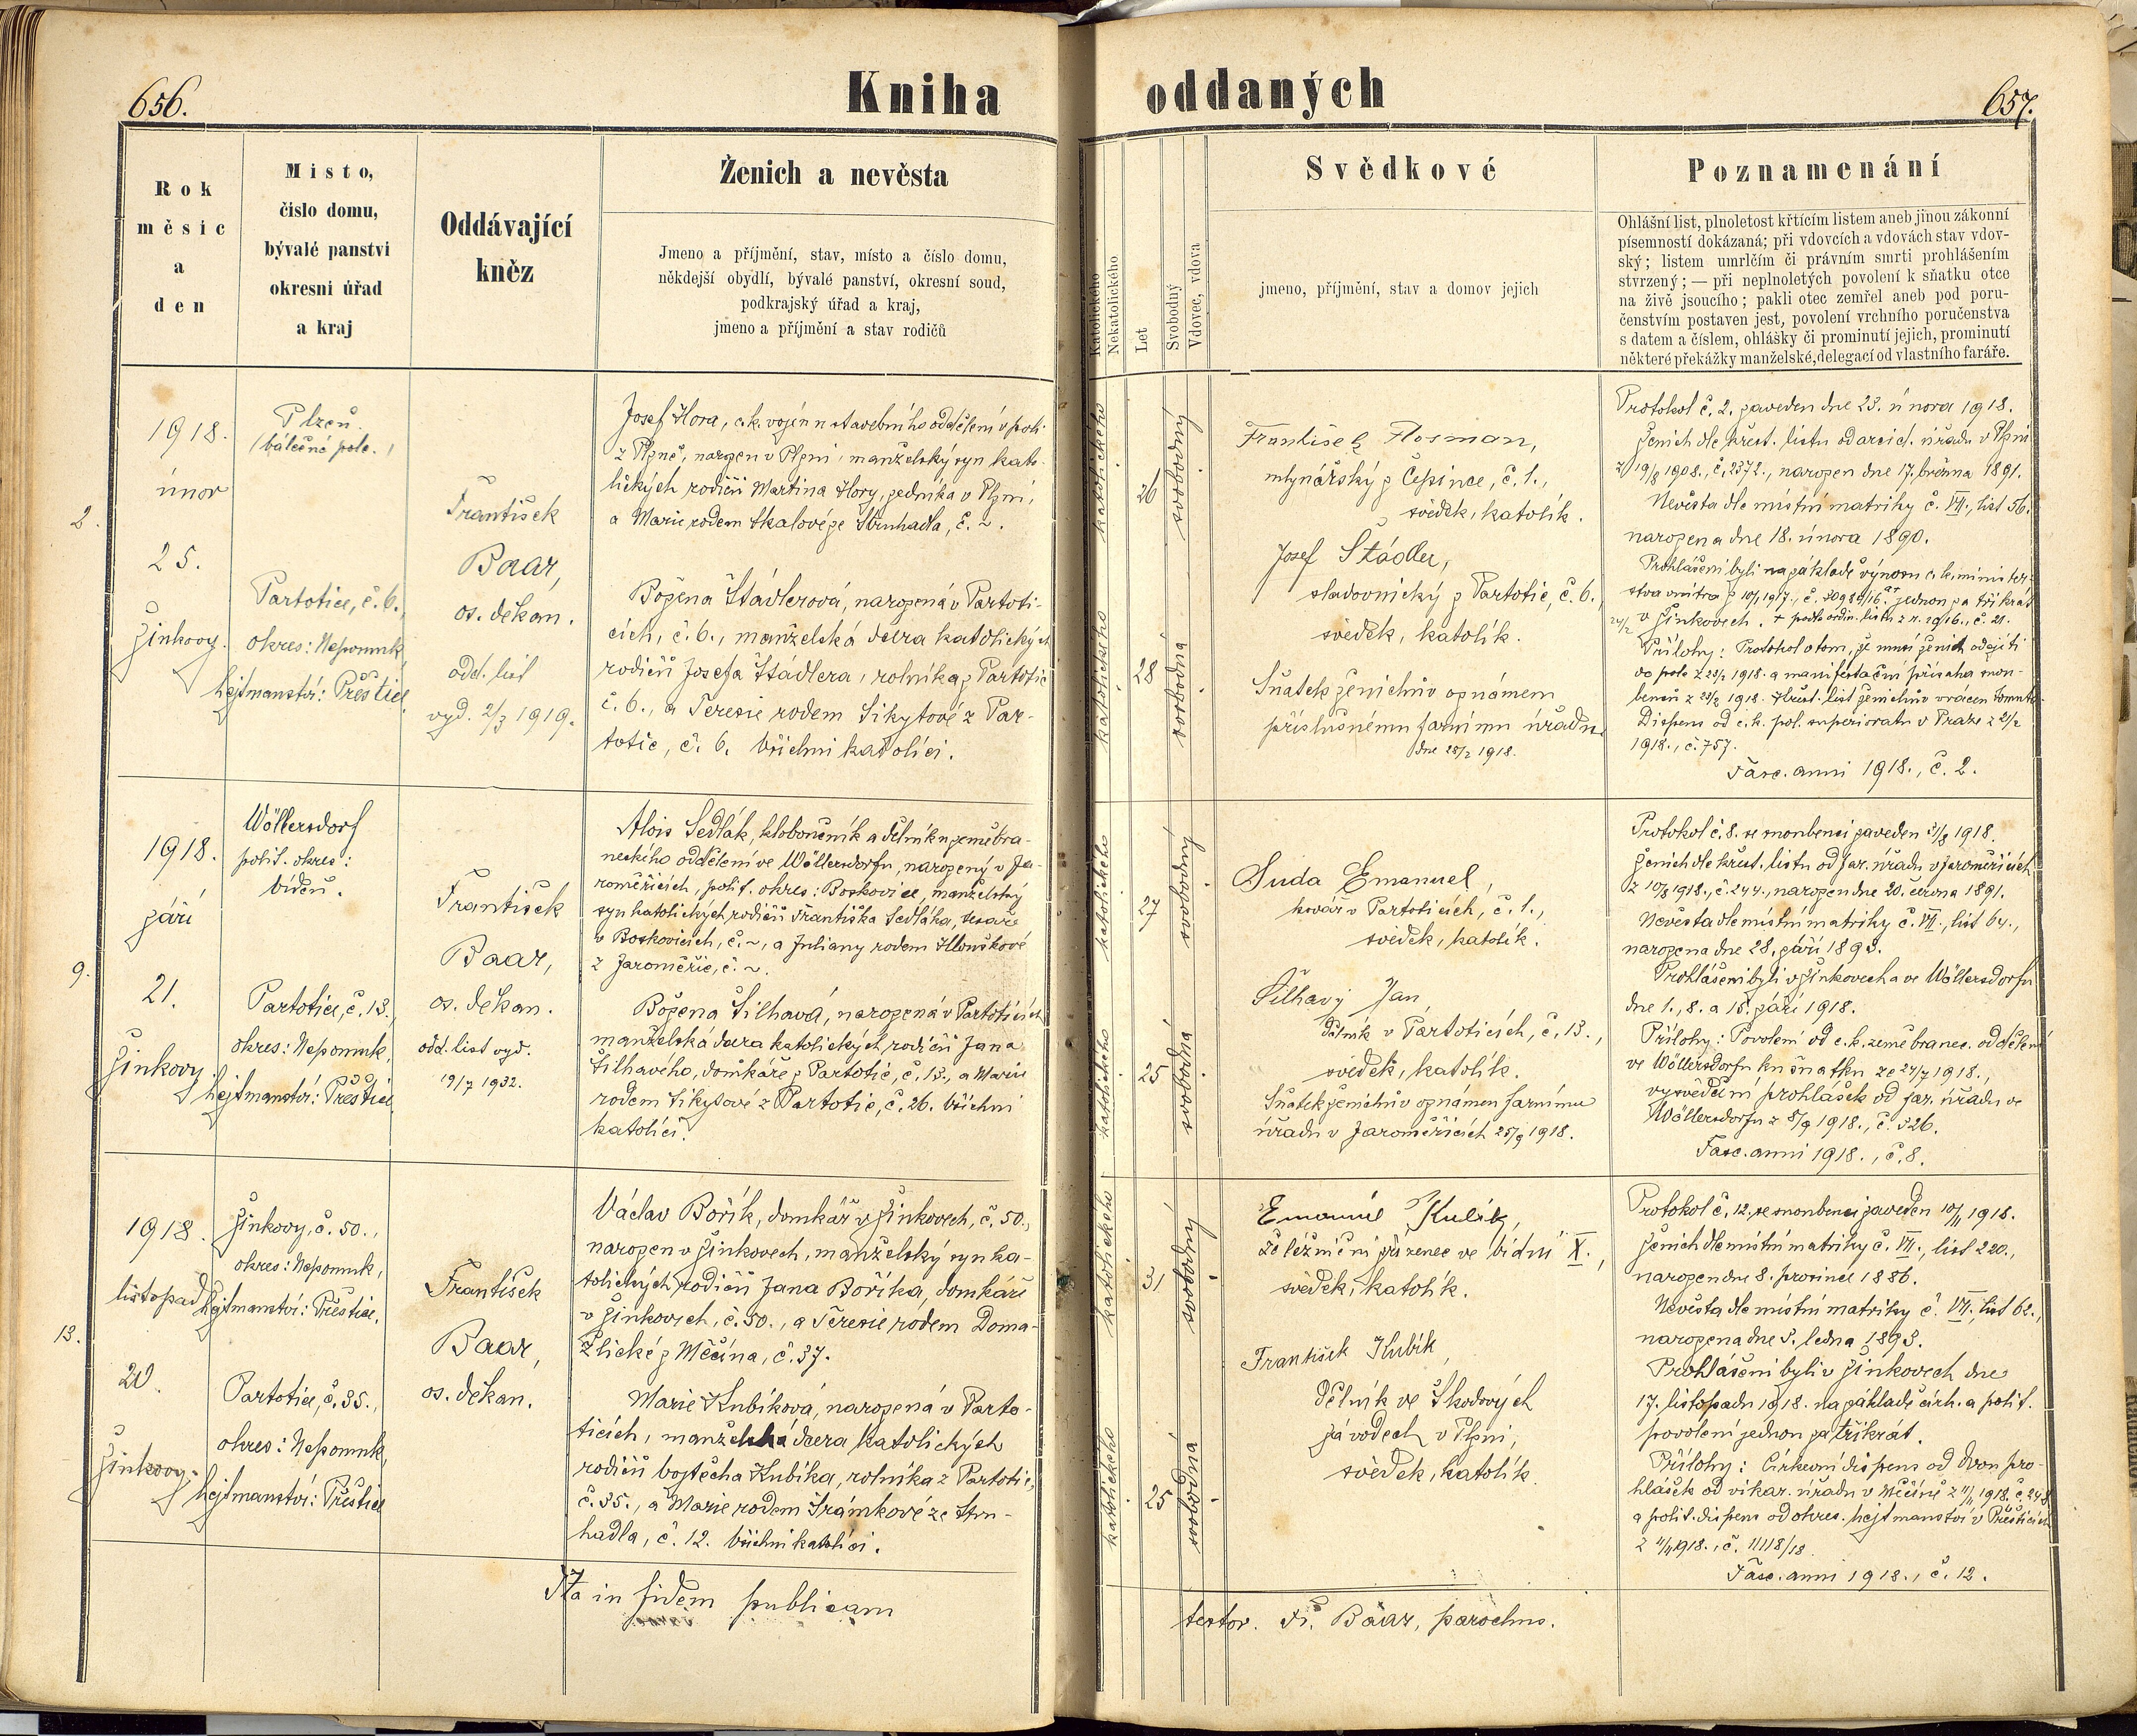 656.
Kniha
oddaných
657.
Rok
měsíc
a
den
Misto,
čislo domu,
bývalé panstvi
okresní úřad
a kraj
Oddávající
kněz
Ženich a nevěsta
Jmeno a příjmění, stav, místo a číslo domu,
někdejší obydlí, bývalé panství, okresní soud,
podkrajský úřad a kraj,
jmeno a příjmění a stav rodičů
Katolického
Nekatolického
Let
Svobodný
Vdovec, vdova
Svědkové
jmeno, příjmění, stav a domov jejich
Poznamenání
Ohlášní list, plnoletost křtícím listem aneb jinou zákonní
písemností dokázaná; při vdovcích a vdovách stav vdov-
ský; listem umrlčím či právním smrti prohlášením
stvrzený; — při neplnoletých povolení k sňatku otce
na živě jsoucího; pakli otec zemřel aneb pod poru-
čenstvím postaven jest, povolení vrchního poručenstva
s datem a číslem, ohlášky či prominutí jejich, prominutí
některé překážky manželské, delegací od vlastního faráře.
2.
1918.
únor
25.
Žinkovy.
Plzeň.
(válečné pole.)
Partotice, č. 6.,
okres: Nepomuk,
hejtmanství: Přeštice.
František
Baar,
os. děkan.
odd. list
vyd. 2/3 1919.
Josef Hora, c. k. vojín u stavebního oddělení v poli
z Plzně, narozen v Plzni, manželský syn kato-
lických rodičů Martina Hory, zedníka v Plzni,
a Marie rodem Skalové ze Struhadla, č. ~.
Božena Štádlerová, narozená v Partoti-
cích, č. 6., manželská dcera katolických
rodičů Josefa Štádlera, rolníka z Partotic
č. 6., a Terezie rodem Sikytové z Par-
totic, č. 6. Všichni katolíci.
katolického
26
svobodný
katolického
28
svobodná
František
mlynářský z Čepince, č. 1.,
svědek, katolík.
Josef Štádler,
sladovnický z Partotic, č. 6.,
svědek, katolík.
Sňatek ženichův oznámen
příslušnému farnímu úřadu
dne 25/2 1918.
Protokol č. 2. zaveden dne 23. února 1918.
Ženich dle křest. listu od arcid. úřadu v Plzni
z 19/8 1908., č. 2372., narozen dne 17. března 1891.
Nevěsta dle místní matriky č. VII., list 56.
narozena dne 18. února 1890.
Prohlášeni byli na základě výnosu c. k. minister-
stva vnitra z jednou za třikrát
24/2 v Žinkovech. + podle ordin. listu z r. 1916., č. 21.
Přílohy: Protokol o tom, že musí ženich odejíti
do pole z 23/2 1918. a manifestační přísaha snou-
benců z 23/2 1918. Křest. list ženichův vrácen
Dispens od c. k. pol. superiorátu v Praze z 2/2
1918., č. 757.
Fasc. anni 1918., č. 2.
9.
1918.
září
21.
Žinkovy.
Wöllersdorf
polit. okres:
Vídeň.
Partotice, č. 13.,
okres: Nepomuk,
hejtmanství: Přeštice.
František
Baar,
os. děkan.
odd. list vyd.
19/7 1932.
Alois Sedlák, kloboučník a dělník u zeměbra-
neckého oddělení ve Wöllersdorfu, narozený v Ja-
roměřicích, polit. okres: Boskovice, manželský
syn katolických rodičů Františka Sedláka, tesaře
v Boskovicích, č. ~, a Juliany rodem Hlouškové
z Jaroměřic, č. ~.
Božena Šilhavá, narozená v Partoticích,
manželská dcera katolických rodičů Jana
Šilhavého, domkáře z Partotic, č. 13., a Marie
rodem Sikytové z Partotic, č. 26. Všichni
katolíci.
katolického
27
svobodný
katolického
25
svobodná
Suda Emanuel,
kovář v Partoticích, č. 1.,
svědek, katolík.
Šilhavý Jan,
dělník v Partoticích, č. 13.,
svědek, katolík.
Sňatek ženichův oznámen farnímu
úřadu v Jaroměřicích 25/9 1918.
Protokol č. 8. se snoubenci zaveden 31/8 1918.
Ženich dle křest. listu od far. úřadu v Jaroměřicích
z 10/8 1918., č. 244., narozen dne 20. června 1891.
Nevěsta dle místní matriky č. VII., list 64.,
narozena dne 28. září 1893.
Prohlášeni byli v Žinkovech a ve Wöllersdorfu
dne 1., 8. a 15. září 1918.
Přílohy: Povolení od c. k. země branec. oddělení
ve Wöllersdorfu ku sňatku ze 24/7 1918.,
vysvědčení prohlášek od far. úřadu ve
Wöllersdorfu z 8/9 1918., č. 326.
Fasc. anni 1918., č. 8.
13.
1918.
listopad
20.
Žinkovy.
Žinkovy, č. 50.,
okres: Nepomuk,
hejtmanství: Přeštice.
Partotice, č. 35.,
okres: Nepomuk,
hejtmanství: Přeštice
František
Baar,
os. děkan.
Václav Bořík, domkář v Žinkovech, č. 50.,
narozen v Žinkovech, manželský syn ka-
tolických rodičů Jana Boříka, domkáře
v Žinkovech, č. 50., a Terezie rodem Doma-
žlické z Měčína, č. 37.
Marie Kubíková, narozená v Parto-
ticích, manželská dcera katolických
rodičů Vojtěcha Kubíka, rolníka z Partotic,
č. 35., a Marie rodem Šrámkové ze Stru-
hadla, č. 12. Všichni katolíci.
katolického
31
svobodný
katolického
25
svobodná
Emanuel Kubík,
železniční zřízenec ve Vídni X.,
svědek, katolík.
František Kubík,
dělník ve Škodových
závodech v Plzni,
svědek, katolík.
Protokol č. 12. se snoubenci zaveden 10/11 1918.
Ženich dle místní matriky č. VII., list 220.,
narozen dne 8. prosince 1886.
Nevěsta dle místní matriky č. VII., list 62.,
narozena dne 3. ledna 1893.
Prohlášeni byli v Žinkovech dne
17. listopadu 1918. na základě círk. a polit.
povolení jednou za třikrát.
Přílohy: Církevní dispens od dvou pro-
hlášek od vikar. úřadu v Měčíně z 11/11 1918. č. 248
a polit. dispens od okres. hejtmanství v Přešticích
z 11/11 1918., č. 11118/18.
Fasc. anni 1918., č. 12.
Ita in fidem publicam
testor. Fr. Baar, parochus.